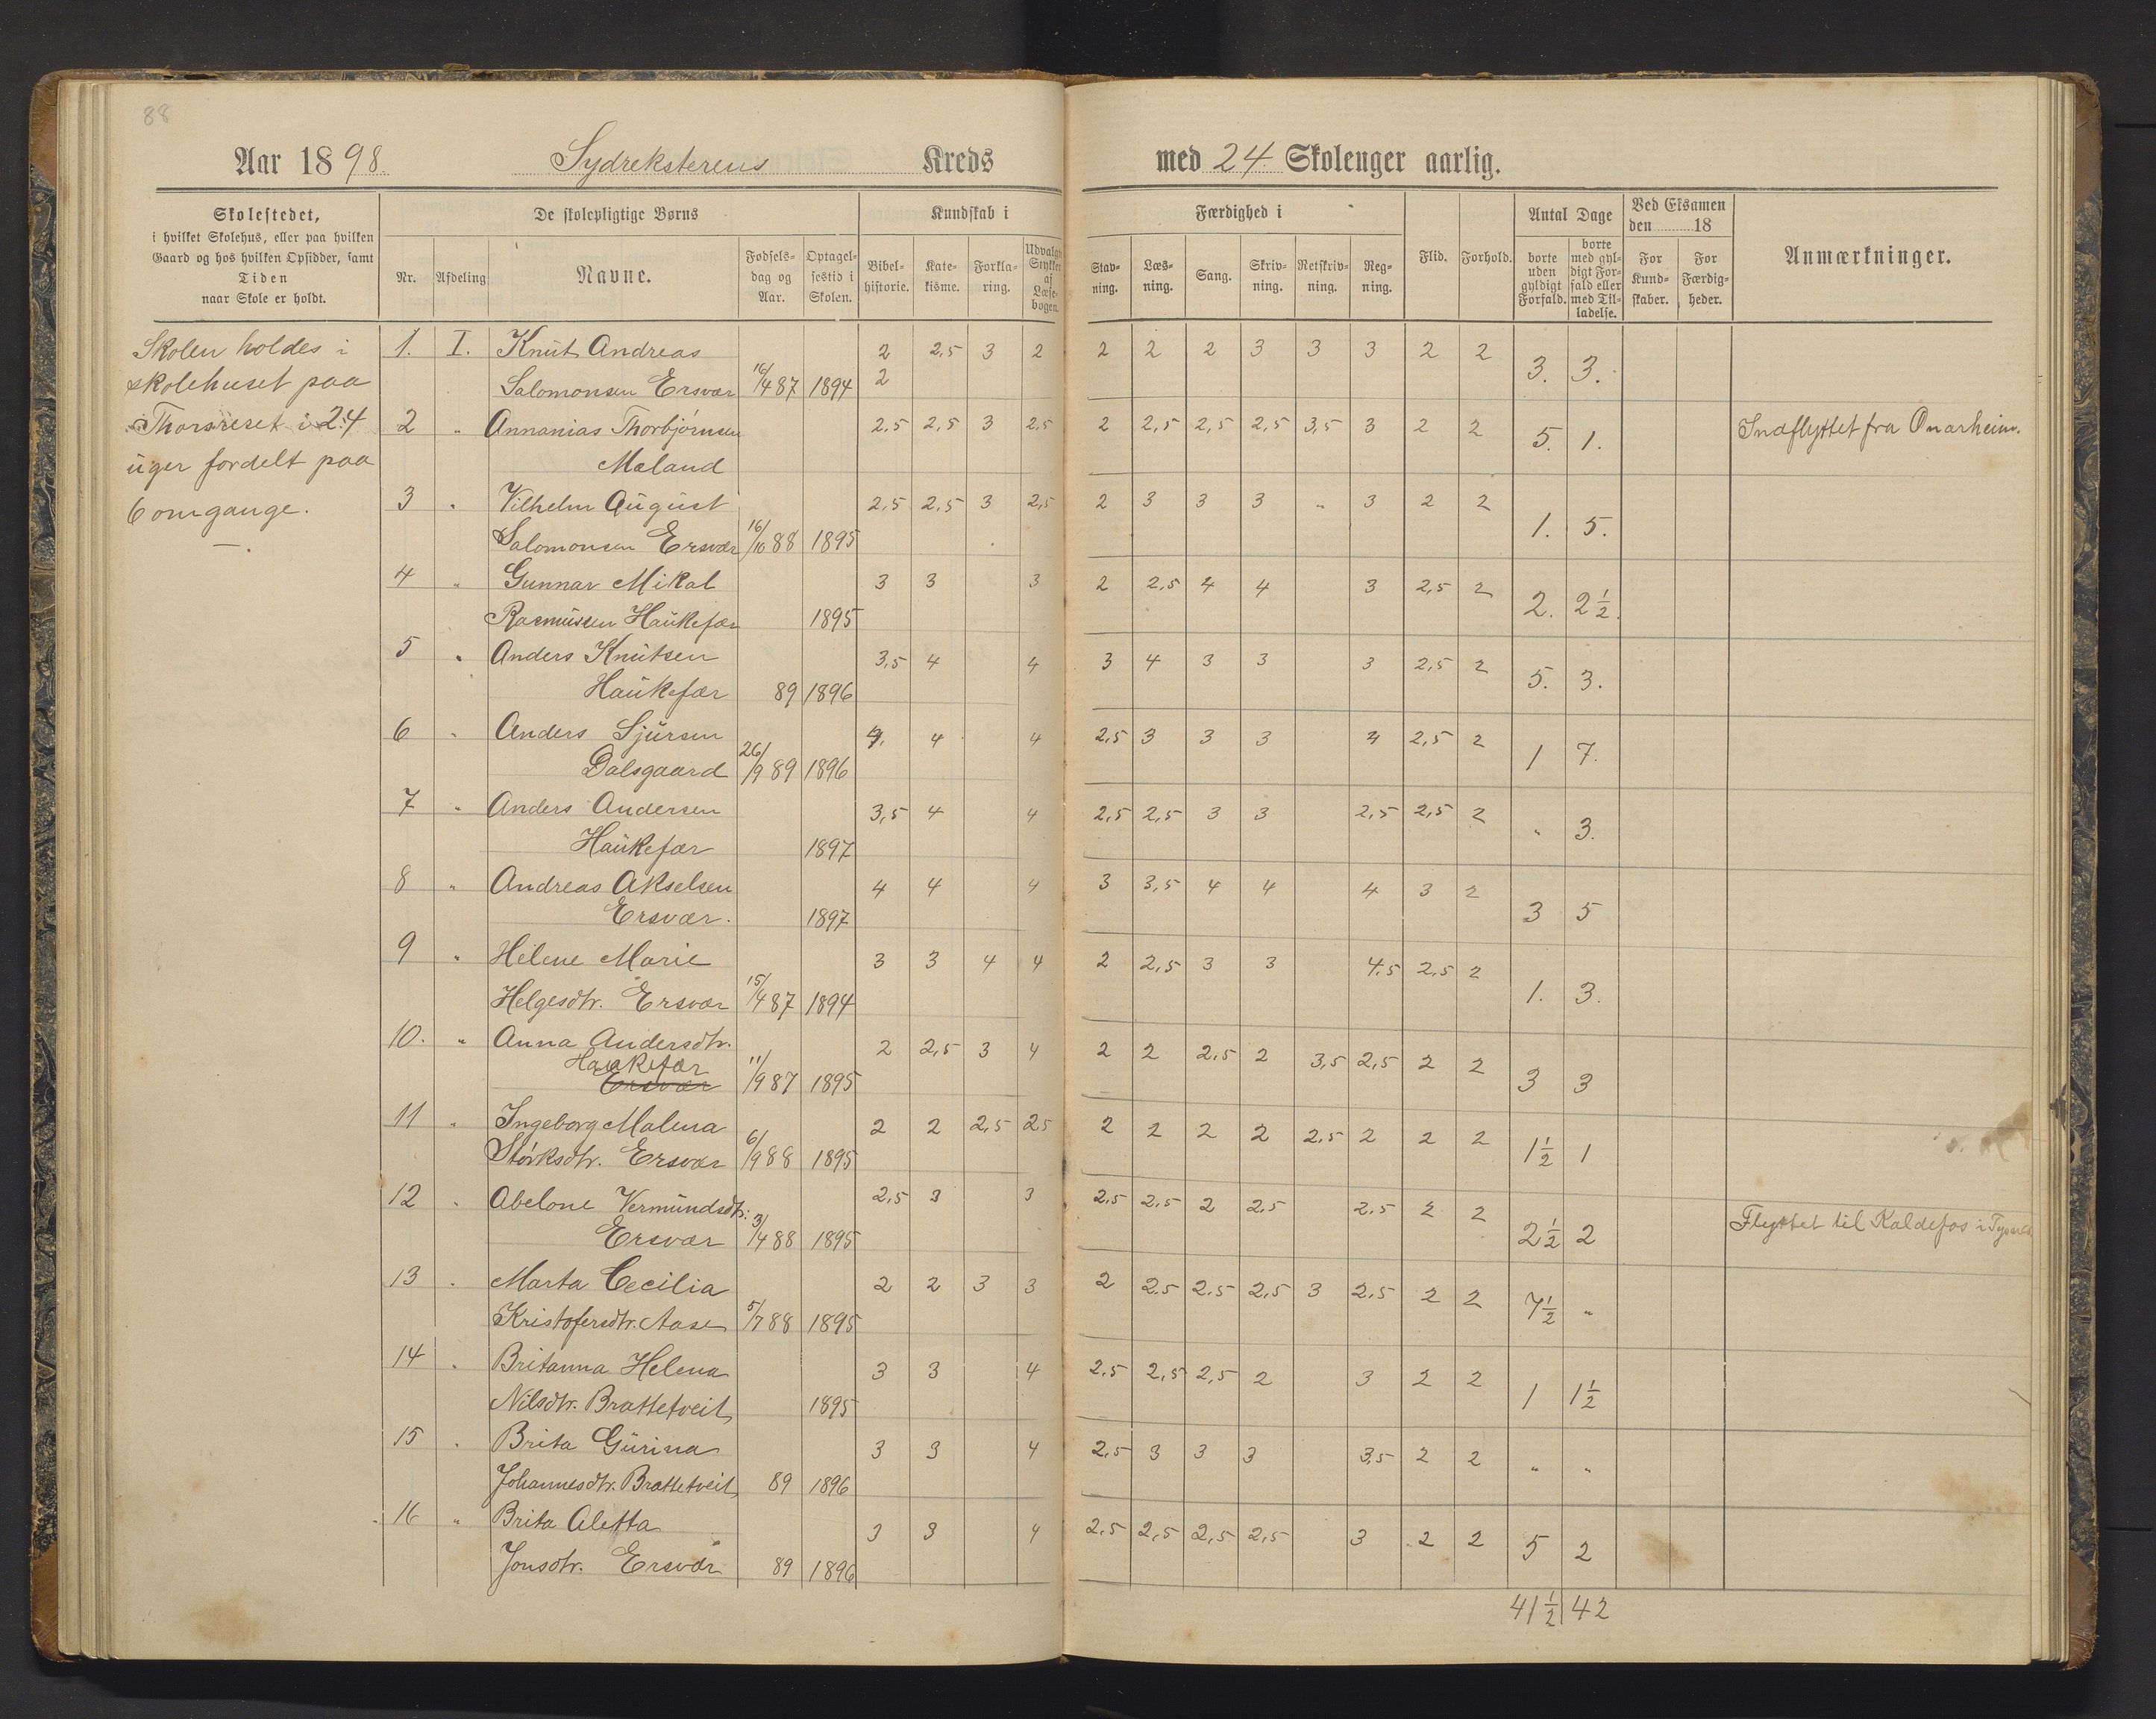 88
Aar 1898. Sydreksterens Kreds med 24 Skolenger aarlig.
Skolestedet,
i hvilket Skolehus, eller paa hvilken
Gaard og hos hvilken Opsidder, samt
Tiden
naar Skole er holdt.
De skolepligtige Børns
Nr. Afdeling Navne. Fødsels-dag og Aar. Optagel-sestid i Skolen.
Kundskab i
Bibel-historie. Kate-kisme. Forkla-ring. Udvalgte Stykker af Læse-bogen.
Færdighed i
Stav-ning. Læs-ning. Sang. Skriv-ning. Retskriv-ning. Reg-ning.
Flid. Forhold.
Antal Dage
borte uden gyldigt Forfald. borte med gyl-digt For-fald eller med Til-ladelse.
Ved Eksamen
den 18
For Kund-skaber. For Færdig-heder.
Anmærkninger.
Skolen holdes i
skolehuset paa
Thorsreset i 24
uger fordelt paa
6 omgange.
1. I. Knut Andreas 2 2,5 3 2 2 2 2 3 3 3 2 2 3. 3.
Salomonsen Ersvær 16/4 87 1894 2
2 " Annanias Thorbjørnsen 2,5 2,5 3 2,5 2 2,5 2,5 2,5 3,5 3 2 2 5. 1. Indflyttet fra Onarheim.
Mæland
3 " Vilhelm August 2,5 2,5 3 2,5 2 3 3 3 " 3 2 2 1. 5.
Salomonsen Ersvær 16/10 88 1895
4 " Gunnar Mikal 3 3 3 2 2,5 4 4 3 2,5 2 2. 2 1/2.
Rasmussen Haukefær 1895
5 " Anders Knutsen 3,5 4 4 3 4 3 3 3 2,5 2 5. 3.
Haukefær 89 1896
6 " Anders Sjursen 4. 4 4 2,5 3 3 3 4 2,5 2 1 7.
Dalsgaard 26/9 89 1896
7 " Anders Andersen 3,5 4 4 2,5 2,5 3 3 2,5 2,5 2 " 3.
Haukefær 1897
8 " Andreas Akselsen 4 4 4 3 3,5 4 4 4 3 2 3 5
Ersvær. 1897
9 " Helene Marie 3 3 4 4 2 2,5 3 3 4.5 2,5 2 1. 3.
Helgesdtr. Ersvær 15/4 87 1894
10. " Anna Andersdtr. 2 2,5 3 4 2 2 2,5 2 3,5 2,5 2 2 3 3
Haukefær
Ersvær 11/9 87 1895
11 " Ingeborg Malena 2 2 2,5 2,5 2 2 2 2 2,5 2 2 2 1 1/2 1
Størksdtr. Ersvær 6/9 88 1895
12 " Abelone Vermundsdtr. 2,5 3 3 2,5 2,5 2 2,5 2,5 2 2 2 1/2 2 Flyttet til Kaldefos i Tysnes
Ersvær 3/4 88 1895
13 " Marta Cecilia 2 2 3 3 2 2.5 2.5 2,5 3 2.5 2 2 7 1/2 "
Kristofersdtr. Aase 5/7 88 1895
14 " Britanna Helena 3 3 4 2.5 2,5 2,5 2 3 2 2 1 1 1/2
Nilsdtr. Brattetveit 1895
15 " Brita Gurina 3 3 4 2,5 3 3 3 3,5 2 2 " "
Johannesdtr. Brattetveit 89 1896
16 " Brita Aletta 3 3 4 2,5 2,5 2,5 2,5 3 2 2 5 2
Jonsdtr. Ersvær 89 1896
41 1/2 42